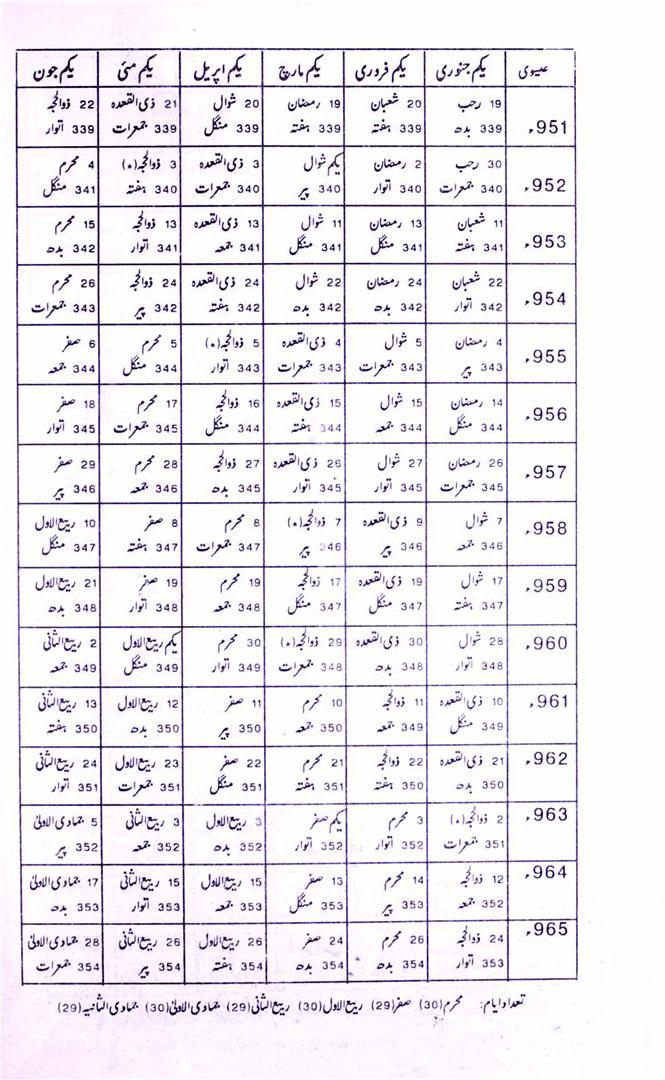 عیسوی یکم جنوری یکم فروری یکم مارچ یکم اپریل یکم مئی یکم جون
951ء 19 رجب 20 شعبان 19 رمضان 20 شوال 21 ذی القعدہ 22 ذوالحجہ
339 بدھ 339 ہفتہ 339 ہفتہ 339 منگل 339 جمعرات 339 اتوار
952ء 30 رجب 2 رمضان یکم شوال 3 ذی القعدہ 3 ذوالحجہ (*) 4 محرم
340 جمعرات 340 اتوار 340 پیر 340 جمعرات 340 ہفتہ 341 منگل
953ء 11 شعبان 13 رمضان 11 شوال 13 ذی القعدہ 13 ذوالحجہ 15 محرم
341 ہفتہ 341 منگل 341 منگل 341 جمعہ 341 اتوار 342 بدھ
954ء 22 شعبان 24 رمضان 22 شوال 24 ذی القعدہ 24 ذوالحجہ 26 محرم
342 اتوار 342 بدھ 342 بدھ 342 ہفتہ 342 پیر 343 جمعرات
955ء 4 رمضان 5 شوال 4 ذی القعدہ 5 ذوالحجہ (*) 5 محرم 6 صفر
343 پیر 343 جمعرات 343 جمعرات 343 اتوار 344 منگل 344 جمعہ
956ء 14 رمضان 15 شوال 15 ذی القعدہ 16 ذوالحجہ 17 محرم 18 صفر
344 منگل 344 جمعہ 344 ہفتہ 344 منگل 345 جمعرات 345 اتوار
957ء 26 رمضان 27 شوال 26 ذی القعدہ 27 ذوالحجہ 28 محرم 29 صفر
345 جمعرات 345 اتوار 345 اتوار 345 بدھ 346 جمعہ 346 پیر
958ء 7 شوال 9 ذی القعدہ 7 ذوالحجہ (*) 8 محرم 8 صفر 10 ربیع الاول
346 جمعہ 346 پیر 346 پیر 347 جمعرات 347 ہفتہ 347 منگل
959ء 17 شوال 19 ذی القعدہ 17 ذوالحجہ 19 محرم 19 صفر 21 ربیع الاول
347 ہفتہ 347 منگل 347 منگل 348 جمعہ 348 اتوار 348 بدھ
960ء 28 شوال 30 ذی القعدہ 29 ذوالحجہ (*) 30 محرم یکم ربیع الاول 2 ربیع الثانی
348 اتوار 348 بدھ 348 جمعرات 349 اتوار 349 منگل 349 جمعہ
961ء 10 ذی القعدہ 11 ذوالحجہ 10 محرم 11 صفر 12 ربیع الاول 13 ربیع الثانی
349 منگل 349 جمعہ 350 جمعہ 350 پیر 350 بدھ 350 ہفتہ
962ء 21 ذی القعدہ 22 ذوالحجہ 21 محرم 22 صفر 23 ربیع الاول 24 ربیع الثانی
350 بدھ 350 ہفتہ 351 ہفتہ 351 منگل 351 جمعرات 351 اتوار
963ء 2 ذوالحجہ (*) 3 محرم یکم صفر 3 ربیع الاول 3 ربیع الثانی 5 جمادی الاولیٰ
351 جمعرات 352 اتوار 352 اتوار 352 بدھ 352 جمعہ 352 پیر
964ء 12 ذوالحجہ 14 محرم 13 صفر 15 ربیع الاول 15 ربیع الثانی 17 جمادی الاولیٰ
352 جمعہ 353 پیر 353 منگل 353 جمعہ 353 اتوار 353 بدھ
965ء 24 ذوالحجہ 26 محرم 24 صفر 26 ربیع الاول 26 ربیع الثانی 28 جمادی الاولیٰ
353 اتوار 354 بدھ 354 بدھ 354 ہفتہ 354 پیر 354 جمعرات
تعداد ایام: محرم (30) صفر (29) ربیع الاول (30) ربیع الثانی (29) جمادی الاولیٰ (30) جمادی الثانیہ (29)